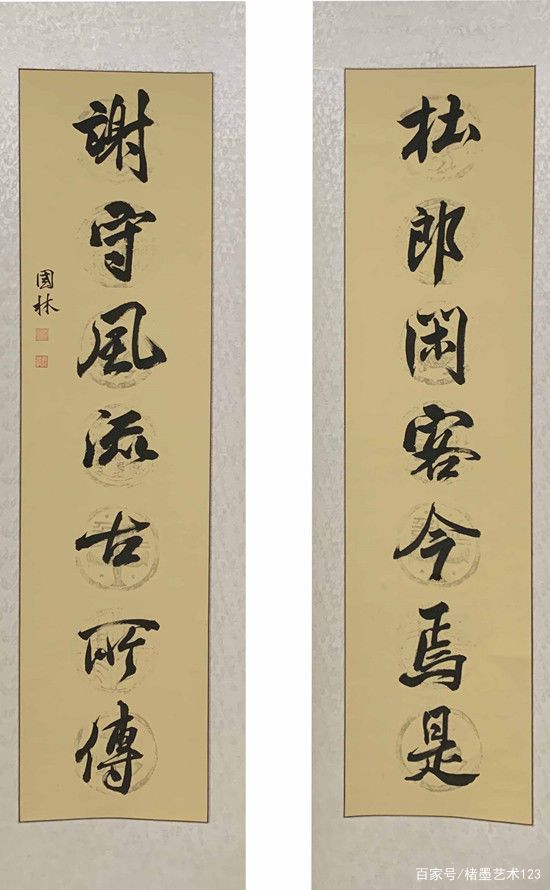 杜郎閑客今焉是
謝守風流古所傳
國林
百家号/楮墨艺术123